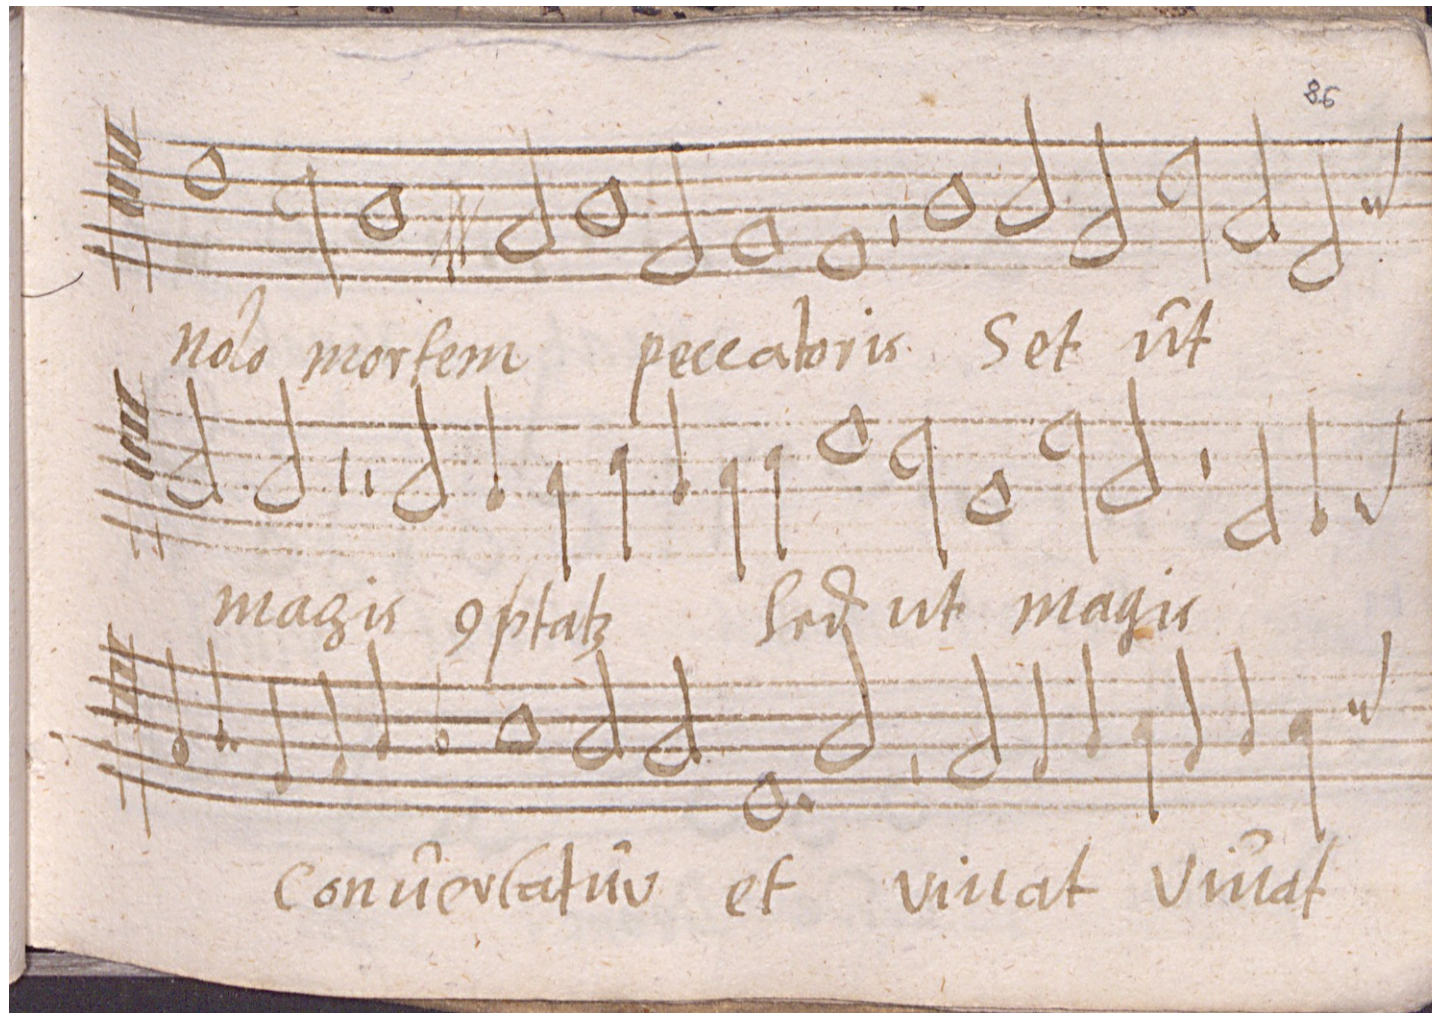 86
nolo mortem peccatoris Set ût
magis ꝯptatꝫ sed ut magis
Conûersatûr et viuat Viûat